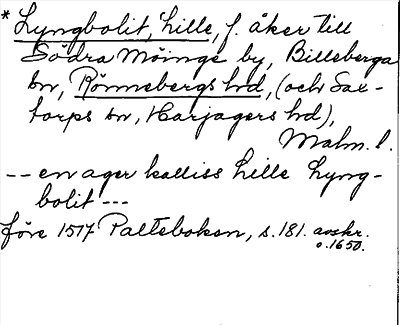 * Lyngbolit, lille, f. åker till
Södra Möinge by, Billeberga
sn, Rönnebergs hrd, (och Sax-
torps sn, Harjagers hrd),
Malm. l.
-- en ager kalliss lille Lyng-
bolit ---
före 1517 Palteboken, s. 181. avskr.
o. 1650.